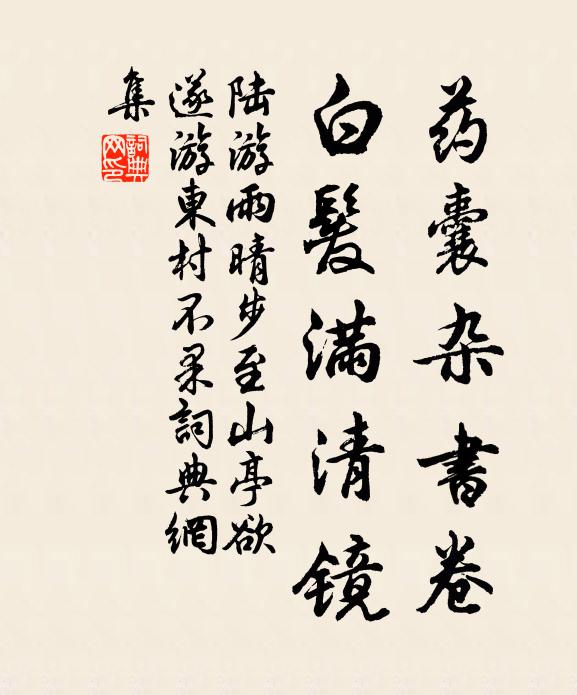 药囊杂書卷
白髮满清镜
陆游雨晴步至山亭欲
遂游東村不果詞典網
集
詞典網印